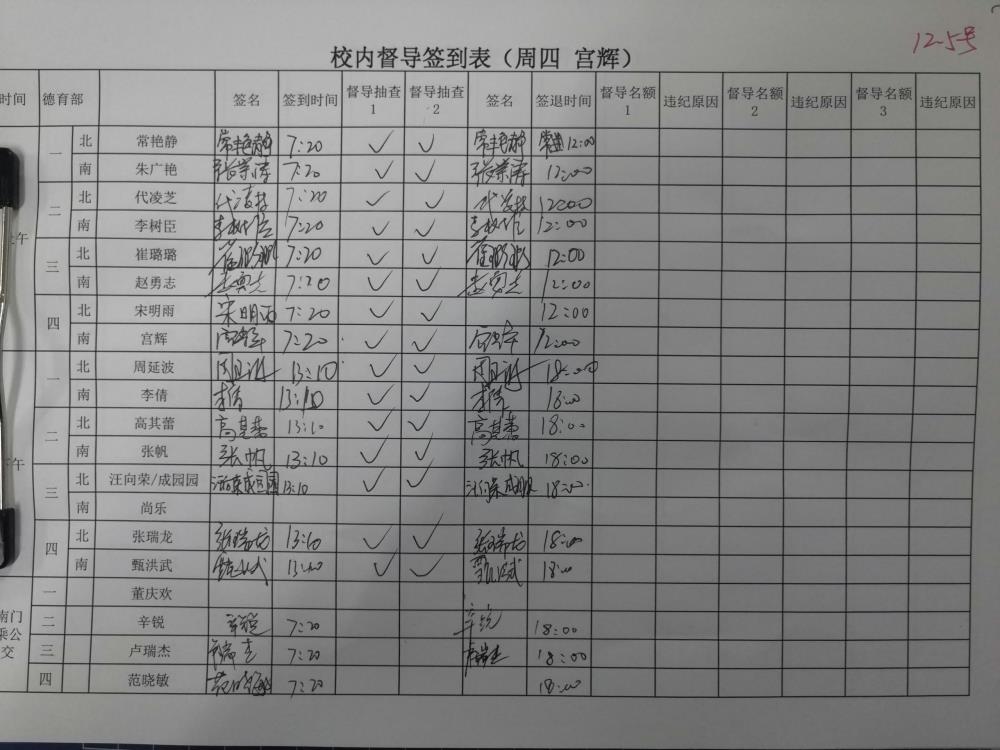 12-5号
校内督导签到表（周四 宫辉）
时间 德育部 签名 签到时间 督导抽查1 督导抽查2 签名 签退时间 督导名额1 违纪原因 督导名额2 违纪原因 督导名额3 违纪原因
上午 一 北 常艳静 常艳静 7:20 ✓ ✓ 常艳静 12:00
南 朱广艳 7:20 ✓ ✓ 12:00
二 北 代凌芝 代凌芝 7:20 ✓ ✓ 代凌芝 12:00
南 李树臣 李树臣 7:20 ✓ ✓ 李树臣 12:00
三 北 崔璐璐 崔璐璐 7:20 ✓ ✓ 崔璐璐 12:00
南 赵勇志 7:20 ✓ ✓ 12:00
四 北 宋明雨 宋明雨 7:20 ✓ ✓ 12:00
南 宫辉 宫辉 7:20 ✓ ✓ 宫辉 12:00
下午 一 北 周延波 13:10 ✓ ✓ 18:00
南 李倩 李倩 13:10 ✓ ✓ 李倩 18:00
二 北 高其蕾 高其蕾 13:10 ✓ ✓ 高其蕾 18:00
南 张帆 张帆 13:10 ✓ ✓ 张帆 18:00
三 北 汪向荣/成园园 汪向荣成园园 13:10 ✓ ✓ 18:00
南 尚乐
四 北 张瑞龙 张瑞龙 13:10 ✓ ✓ 张瑞龙 18:00
南 甄洪武 甄洪武 13:10 ✓ ✓ 甄洪武 18:00
南门乘公交 一 董庆欢
二 辛锐 辛锐 7:20 辛锐 18:00
三 卢瑞杰 卢瑞杰 7:20 卢瑞杰 18:00
四 范晓敏 范晓敏 7:20 18:00